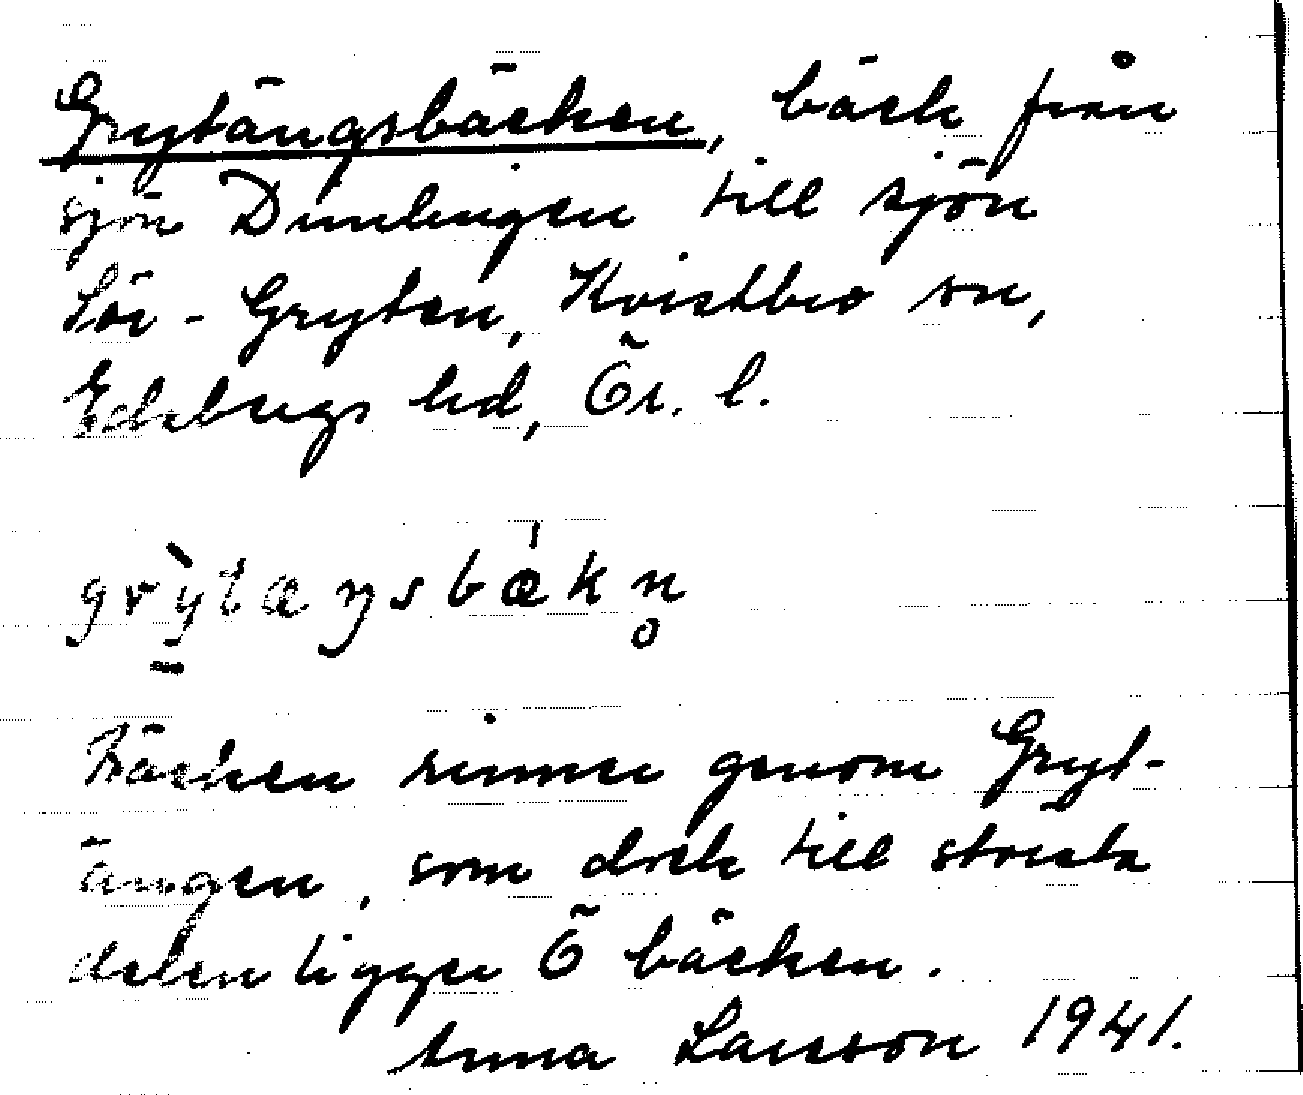 Grytängsbäcken, bäck från
sjön Dunlingen till sjön
Sör-Gryten, Kvistbro sn,
Edsbergs hd, Ör. l.
grỳtæŋsbæ̍kn̥
Bäcken rinner genom Gryt-
ängen, som dock till största
delen ligger Ö bäcken.
Anna Larsson 1941.